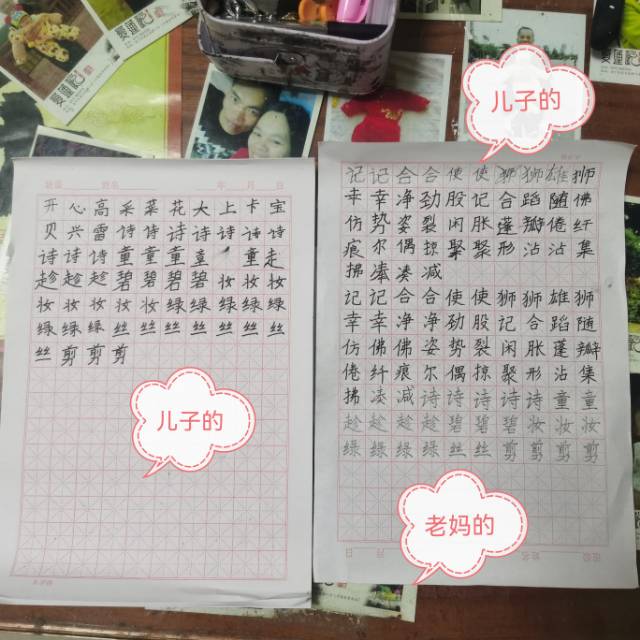 爱懂你
儿子的
开心高采菜花大上卡宝
贝兴雷诗诗诗诗诗诗诗
诗诗诗童童童童童走
趁趁趁碧碧碧碧妆妆妆
妆妆妆妆妆绿绿绿绿绿
绿绿绿丝丝丝丝丝丝丝
丝剪剪剪
儿子的
记记合合使使狮狮雄狮
幸幸净劲股记合蹈随佛
仿势姿裂闲胀蓬瓣倦纤
痕尔偶掠聚聚形沾沾集
拂凑凑减
记记合合使使狮狮雄狮
幸幸净净劲股记合蹈随
仿佛佛姿势裂闲胀蓬瓣
倦纤痕尔偶掠聚形沾集
拂凑减诗诗诗诗诗童童
趁趁趁趁碧碧碧妆妆妆
绿绿绿丝丝丝剪剪剪剪
老妈的